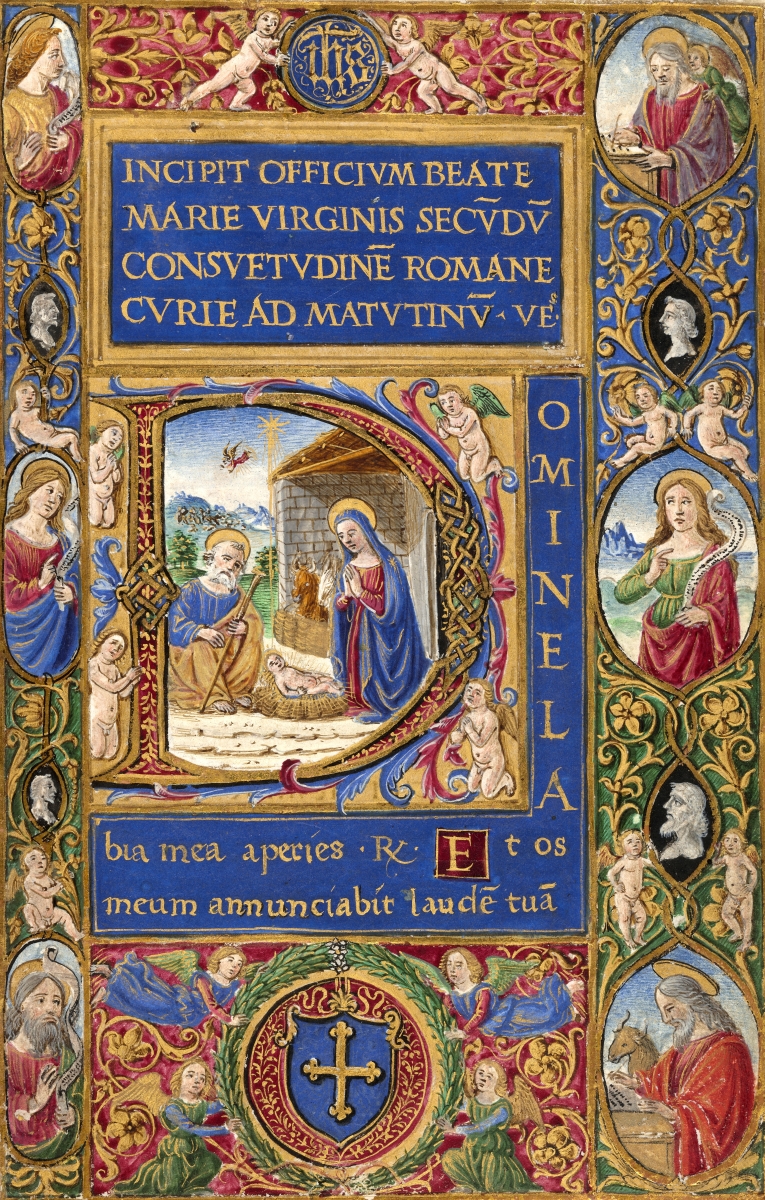 INCIPIT OFFICIVM BEATE
MARIE VIRGINIS SECV̄DV̄
CONSVETVDINĒ ROMANE
CVRIE AD MATVTINV̄ · VEˢ·
D
OMINE LA
bia mea aperies · ℞ · E t os
meum annunciabit laudē tuā